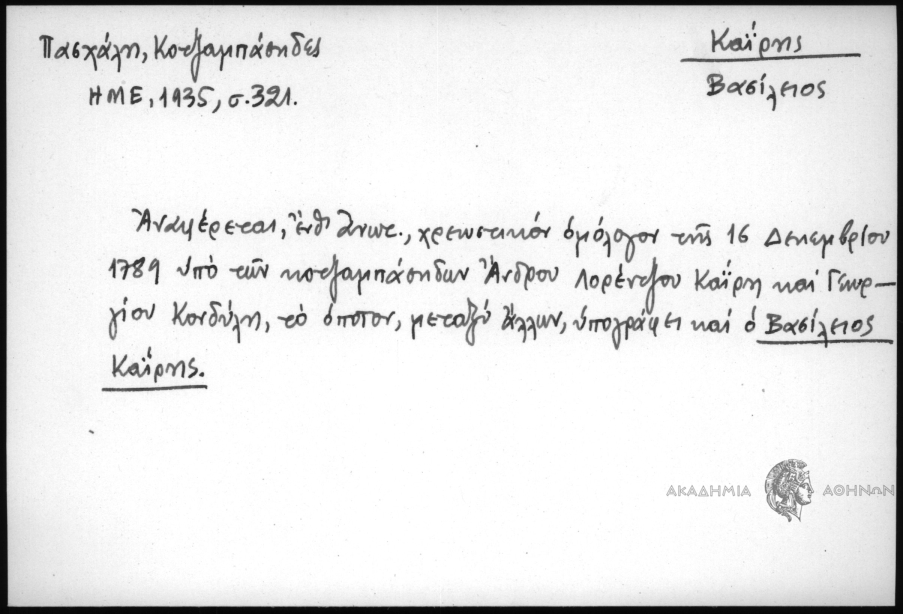 Πασχάλη, Κοτζαμπάσηδες
ΗΜΕ, 1935, σ. 321.
Καΐρης
Βασίλειος
Ἀναφέρεται, ἔνθ' ἄνωτ., χρεωστικόν ὁμόλογον τῆς 16 Δεκεμβρίου
1789 ὑπό τῶν κοτζαμπάσηδων Ἄνδρου Λορέντζου Καΐρη καί Γεωρ-
γίου Κονδύλη, τό ὁποῖον, μεταξύ ἄλλων, ὑπογράφει καί ὁ Βασίλειος
Καΐρης.
ΑΚΑΔΗΜΙΑ ΑΘΗΝΩΝ